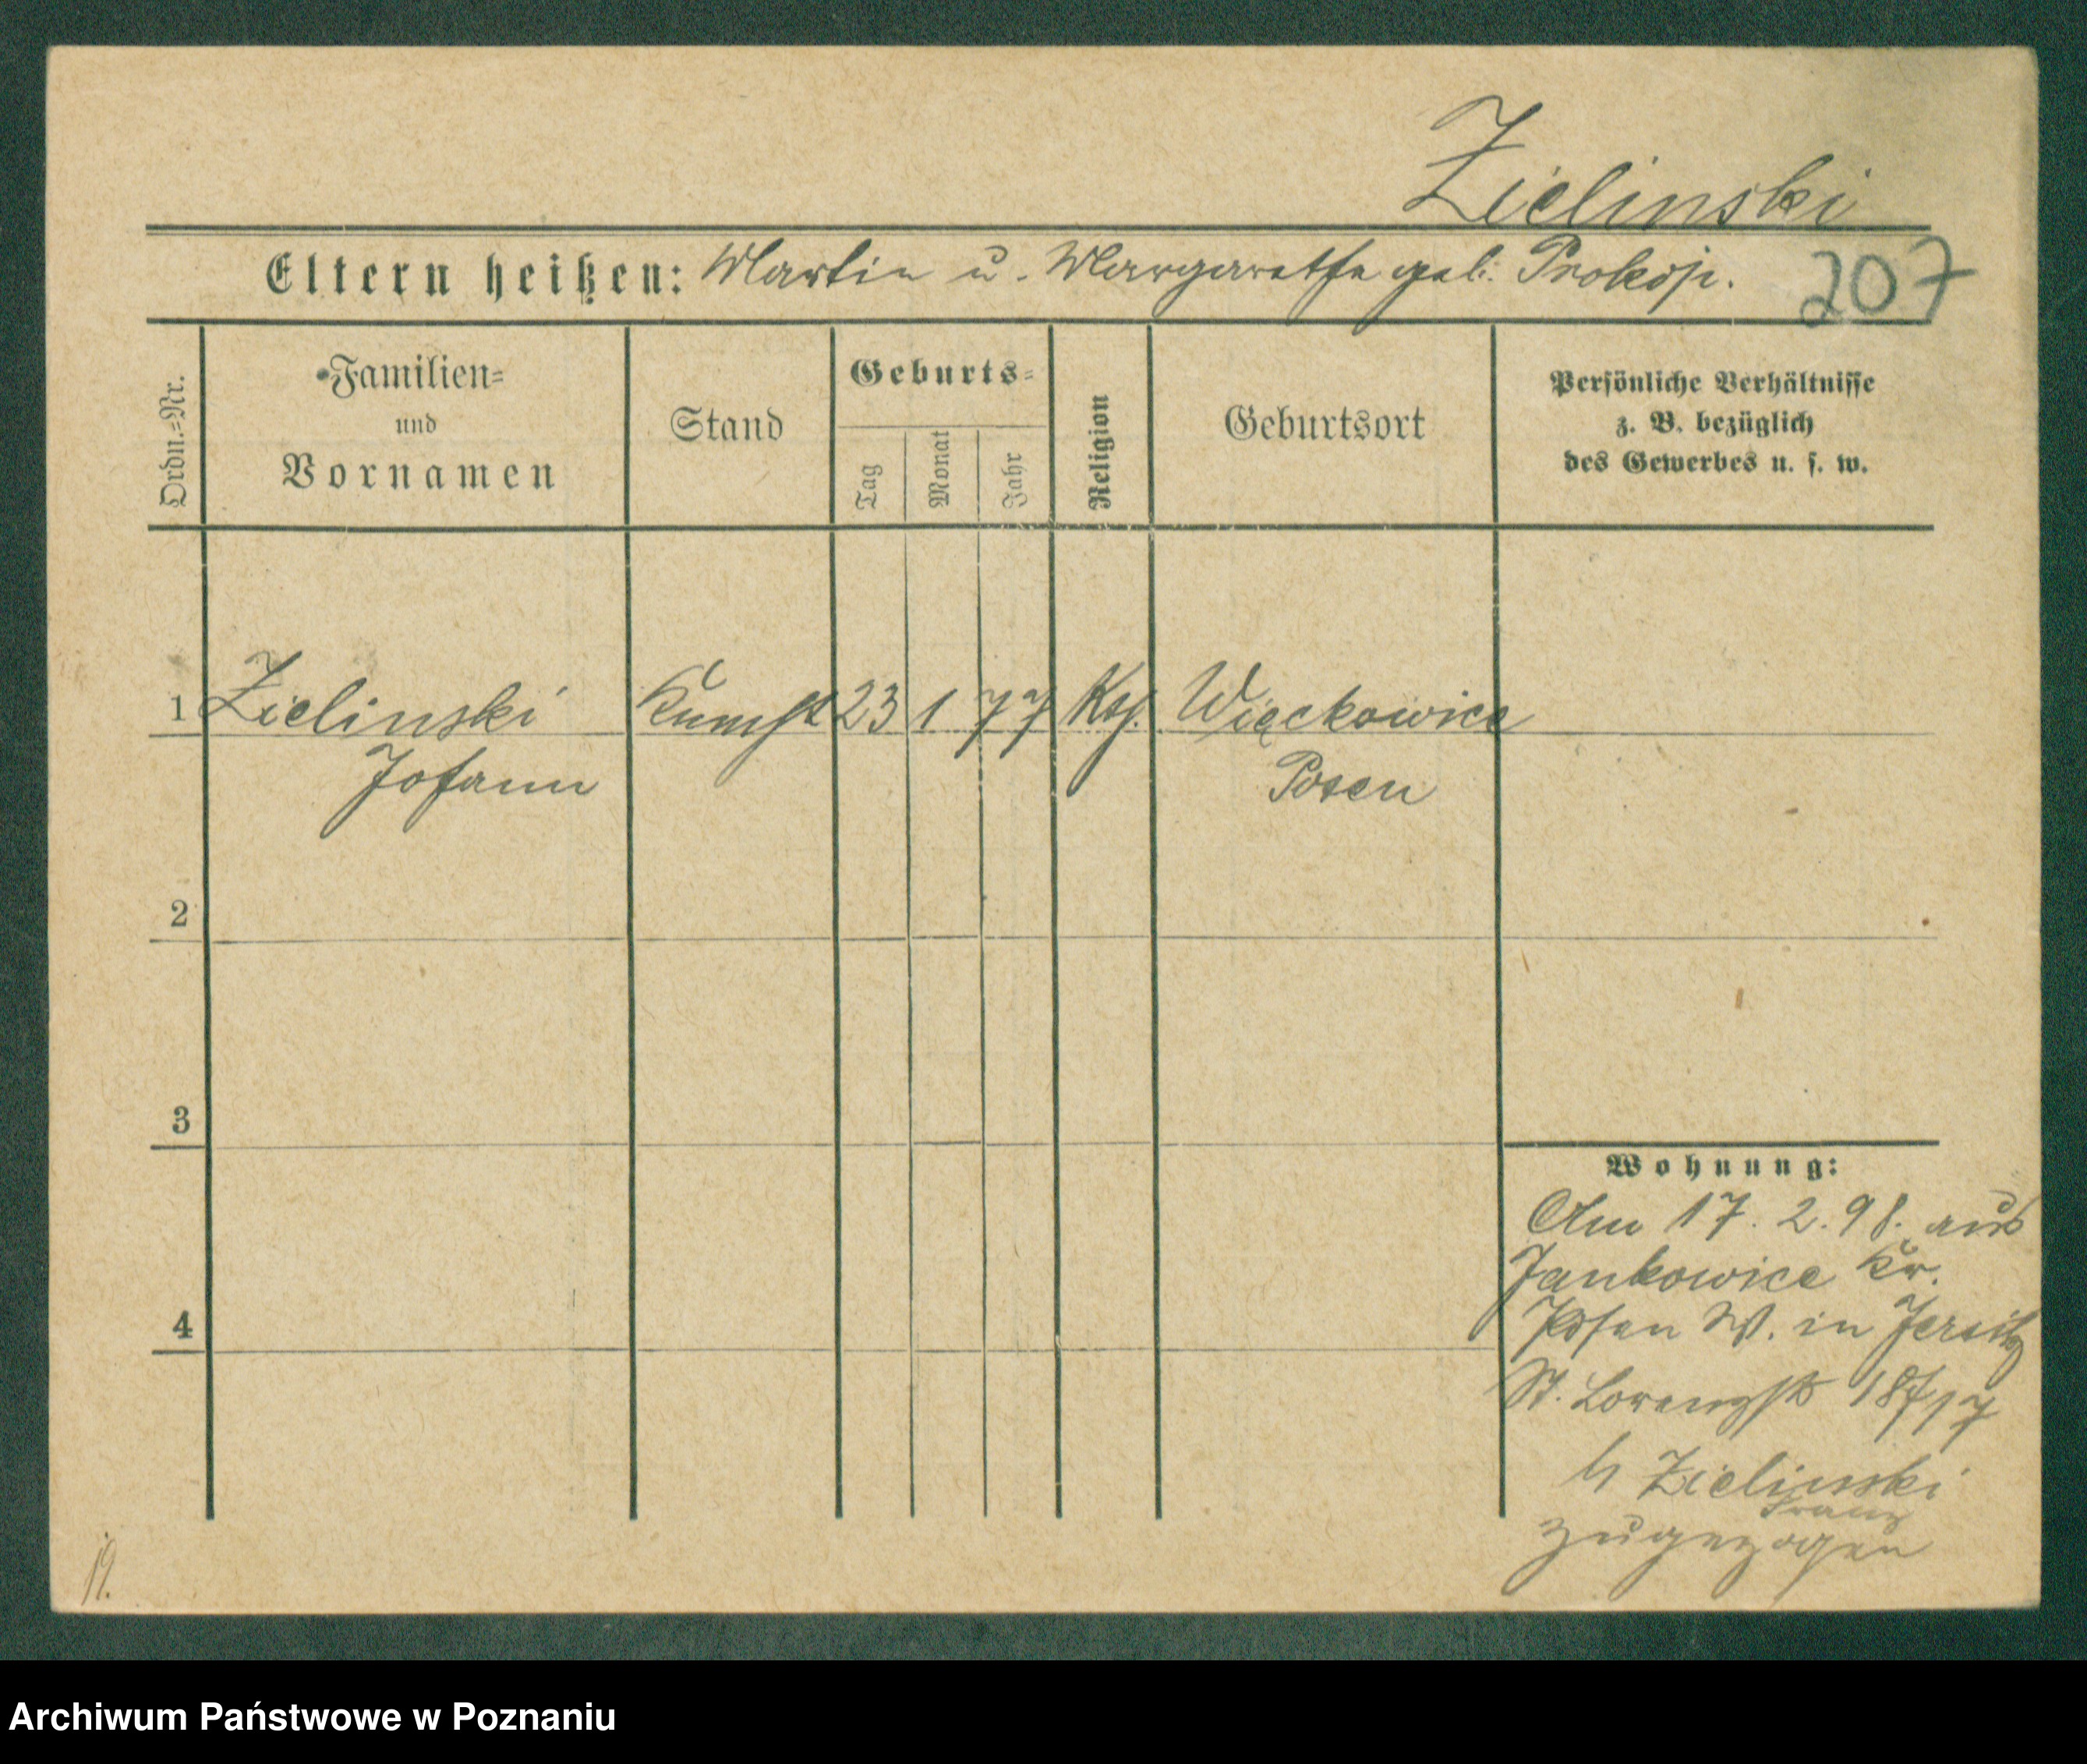 Zielinski
Eltern heißen: Martin u. Margarethe geb. Prokop.
207
Ordn.=Nr.
Familien=
und
Vornamen
Stand
Geburts=
Tag
Monat
Jahr
Religion
Geburtsort
Persönliche Verhältnisse
z. B. bezüglich
des Gewerbes u. s. w.
1 Zielinski 23 1 77 Kth. Więckowice
Johann Posen
2
3
4
Wohnung:
Am 17.2.98. aus
Jankowice Kr.
Posen W. in Jersitz
St. Lorenzstr 18/17
b Zielinski
Franz
zugezogen
19.
Archiwum Państwowe w Poznaniu